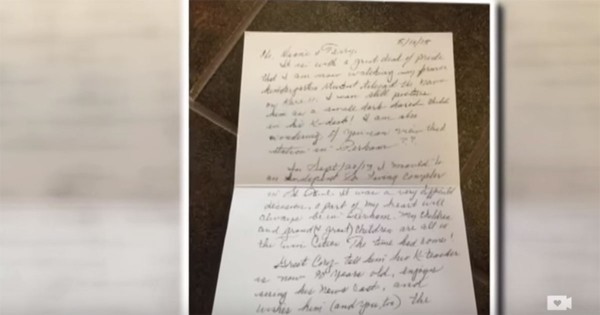 5/14/18
Hi, Duane & Terry,
It is with a great deal of pride
that I am now watching my former
kindergarten student telecast the news
on Kare 11. I can still picture
him as a small dark haired child
in his K-desk! I am also
wondering if you can view that
station in Perham??
In Sept/2017 I moved to
an Independent Sr Living complex
in St Paul. It was a very difficult
decision, a part of my heart will
always be in Perham. My children
and grand (& great) children are all in
the Twin Cities. The time had come!
Greet Cory. Tell him his K-teacher
is now 90 years old, enjoys
seeing his news cast, and
wishes him (and you, too) the